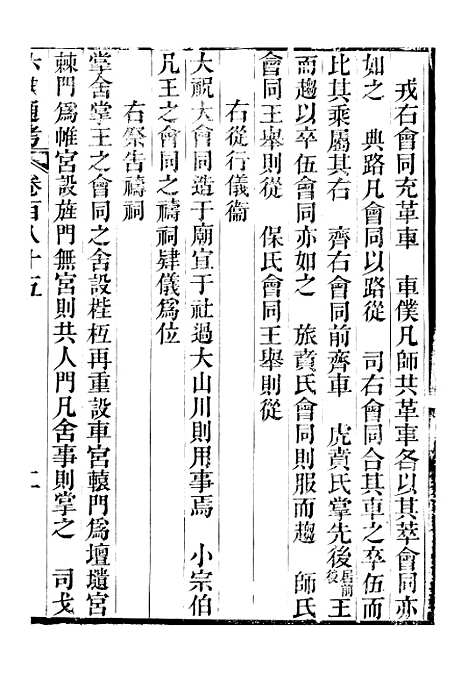 戎右會同充革車　車僕凡師共革車各以其萃會同亦
如之　典路凡會同以路從　司右會同合其車之卒伍而
比其乘屬其右　齊右會同前齊車　虎賁氏掌先後王
而趨以卒伍會同亦如之　旅賁氏會同則服而趨　師氏
會同王舉則從　保氏會同王舉則從
右從行儀衞
大祝大會同造于廟宜于社過大山川則用事焉　小宗伯
凡王之會同之禱祠肄儀爲位
右祭告禱祠
掌舍掌王之會同之舍設梐枑再重設車宮轅門爲壇壝宮
棘門爲帷宮設旌門無宮則共人門凡舍事則掌之　司戈
通考　卷百八十五　二